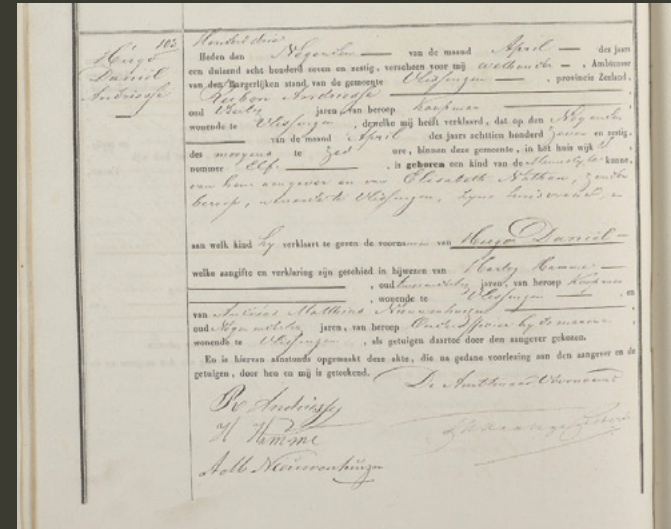 103
Hugo
Daniel
Andriesse
Honderd drie
Heden den Negenden van de maand April des jaars
een duizend acht honderd zeven en zestig, verscheen voor mij Ambtenaar
van den Burgerlijken stand van de gemeente Vlissingen, provincie Zeeland,
Ruben Andriesse
oud jaren, van beroep Koopman
wonende te Vlissingen, dewelke mij heeft verklaard, dat op den Negenden
van de maand April des jaars achttien honderd zeven en zestig,
des morgens te Zes ure, binnen deze gemeente, in het huis wijk
nommer Elf, is geboren een kind van de Mannelijke kunne,
van hem aangever en van Elisabeth Nathan, zonder
beroep, wonende te Vlissingen, zijne huisvrouw, en
aan welk kind hij verklaart te geven de voornamen van Hugo Daniel
welke aangifte en verklaring zijn geschied in bijwezen van Hamme
, oud jaren, van beroep Koopman
, wonende te Vlissingen, en
van Matthius Nieuwenhuizen
oud jaren, van beroep Onderofficier bij de marine,
wonende te Vlissingen, als getuigen daartoe door den aangever gekozen.
En is hiervan afzonds opgemaakt deze akte, die na gedane voorlezing aan den aangever en de
getuigen, door hen en mij is geteekend.
De Ambtenaar voornoemd
R Andriesse
H Hamme
Nieuwenhuizen